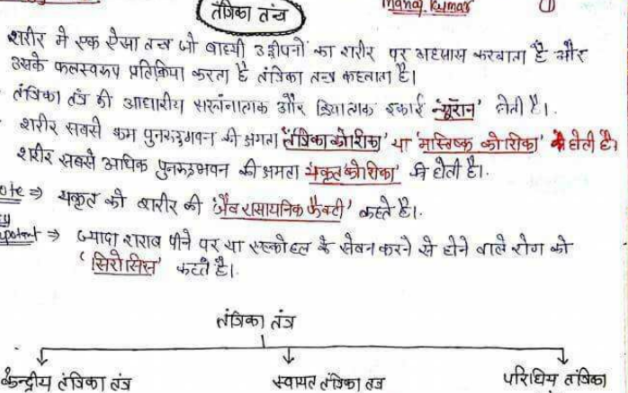 तंत्रिका तन्त्र
Manoj Kumar
①
शरीर में एक ऐसा तन्त्र जो बाहयी उद्दीपनों का शरीर पर अहसास करवाता है और
उसके फलस्वरूप प्रतिक्रिया करता है तंत्रिका तन्त्र कहलाता है।
तंत्रिका तंत्र की आधारीय सरंचनात्मक और क्रियात्मक इकाई 'न्यूरॉन' होती है।
शरीर सबसे कम पुनरुद्भवन की क्षमता 'तंत्रिका कोशिका' या 'मस्तिष्क कोशिका' में होती है।
शरीर सबसे अधिक पुनरुद्भवन की क्षमता यकृत कोशिका' में होती है।
ote ⇒ यकृत को शरीर की 'जैव रासायनिक फैक्ट्री' कहते है।
ज्यादा शराब पीने पर या एल्कोहल के सेवन करने से होने वाले रोग को
'सिरोसिस' कहते है।
तंत्रिका तंत्र
केन्द्रीय तंत्रिका तंत्र स्वायत तंत्रिका तंत्र परिधिय तंत्रिका